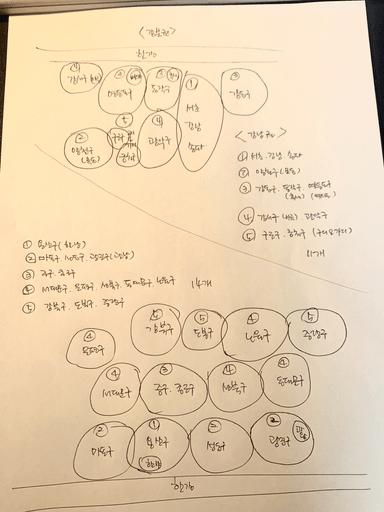 한강
④ 강서구
② 영등포구
③ 동작구
① 서초 강남 송파
③ 강동구
② 양천구 (목동)
⑤ 구로
금천구
④ 관악구
<강남권>
① 서초 강남 송파
② 양천구 (목동)
③ 강동구, 동작구, 영등포구
④ 강서구 관악구
⑤ 구로구, 금천구
11개
① 용산구 (한남)
② 마포구 성동구, 광진구 (광장)
③ 중구 종로구
④ 서대문구 은평구 성북구 동대문구 노원구
14개
⑤ 강북구 도봉구 중랑구
④ 은평구
⑤ 강북구
⑤ 도봉구
④ 노원구
⑤ 중랑구
④ 서대문구
③ 중구. 종로구
④ 성북구
④ 동대문구
② 마포구
① 용산구
한남
② 성동구
② 광진구
한강